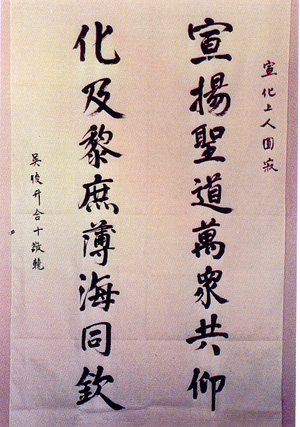 宣化上人圓寂
宣揚聖道萬眾共仰
化及黎庶薄海同欽
吳俊升合十敬輓